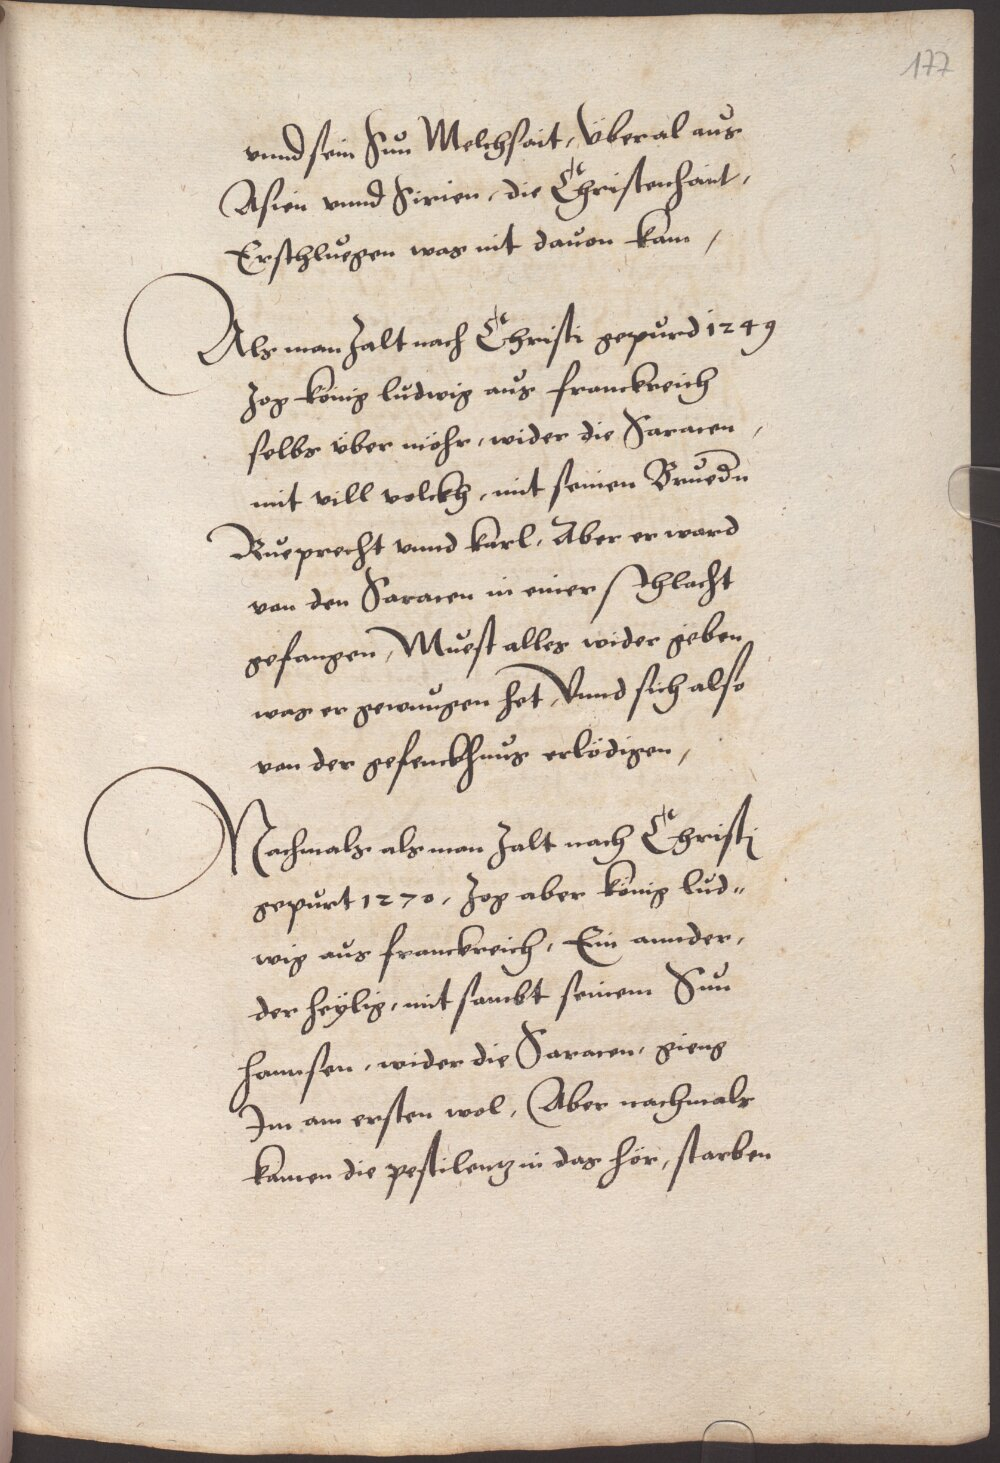 177
vnnd sein Sun Melchsait, Überal aus
Asien vnnd Sirien, die Christenhait,
Erschluegen was nit dauon kam,
Als man zalt nach Christi gepurd 1249
zog König ludwig aus franckreich
selbs über möhr, wider die Saracen,
mit vill volckh, mit seinen Bruedn
Rueprecht vnnd karl, Aber er ward
von den Saracen in einer schlacht
gefangen, Muest alles wider geben
was er gewunngen het, Vnnd sich also
von der gefenckhnus erlödigen,
Nachmals als man zalt nach Christi
gepurt 1270, zog aber könig lud„
wig aus franckreich, Ein annder,
der heÿlig, mit sambt seinem Sun
hannsen, wider die Saracen, gieng
Im am ersten wol, Aber nachmals
kamen die pestilentz in das hör, starben